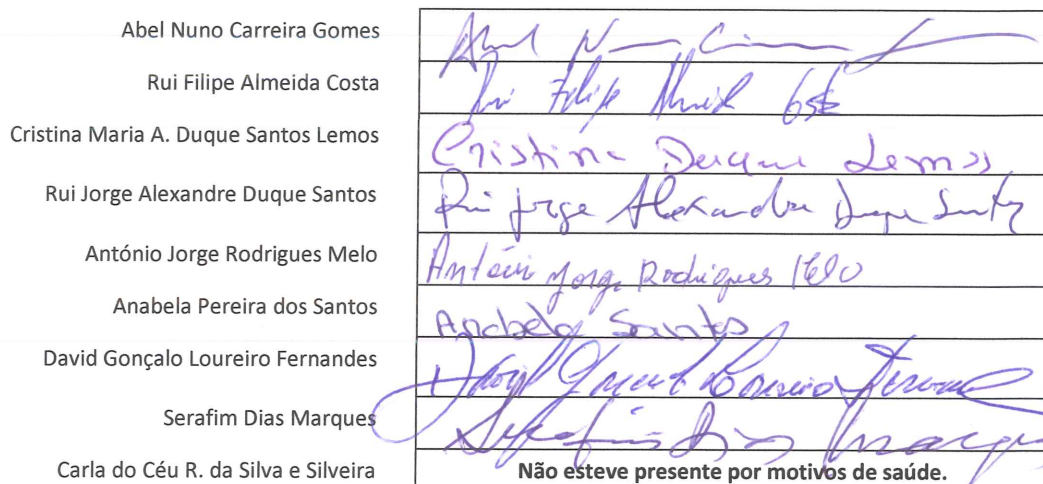 Abel Nuno Carreira Gomes
Rui Filipe Almeida Costa Rui Filipe Almeida Costa
Cristina Maria A. Duque Santos Lemos Cristina Duque Lemos
Rui Jorge Alexandre Duque Santos Rui Jorge Alexandre Duque Santos
António Jorge Rodrigues Melo António Jorge Rodrigues Melo
Anabela Pereira dos Santos Anabela Santos
David Gonçalo Loureiro Fernandes David Loureiro
Serafim Dias Marques Serafim Dias Marques
Carla do Céu R. da Silva e Silveira Não esteve presente por motivos de saúde.